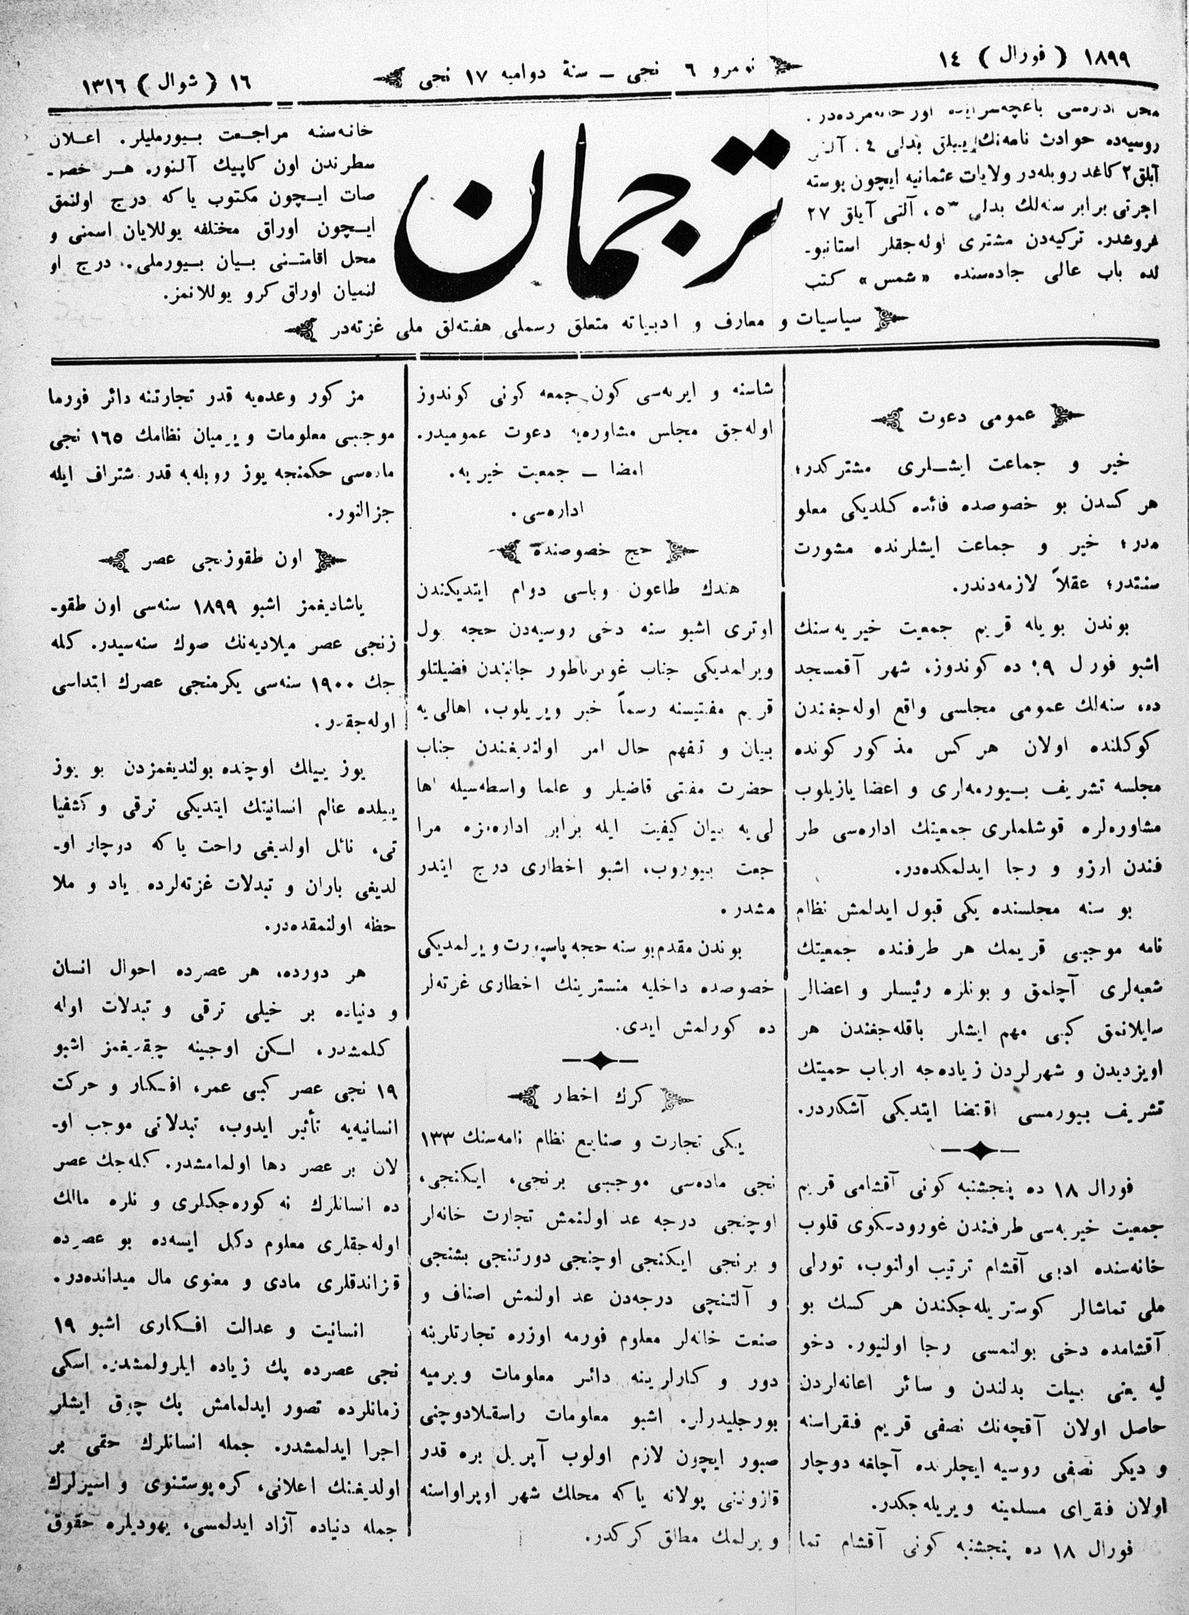 ١٨٩٩ ( فورال ) ١٤
نومرو ٦ نجی ـ سنهٔ دوامیه ١٧ نجی
١٦ ( شوال ) ١٣١٦
محل اداره‌سی باغچه‌سرایده اور خانه‌مرده‌در.
روسیه‌ده حوادث نامه‌نك ییللق بدلی ٤، آلتی
آیلق ٢ کاغد روبله‌در ولایات عثمانیه ایچون بوسته
اجرتی برابر سنه‌لك بدلی ٥٣، آلتی آیلق ٢٧
غروشدر. ترکیه‌دن مشتری اوله‌جقلر استانبو۔
لده باب عالی جاده‌سنده «شمس» کتب
ترجمان
خانه‌سنه مراجعت بیورملیلر. اعلان
سطرندن اون کاپیك آلنور. هر خصو۔
صات ایچون مکتوب یاکه درج اولنمق
ایچون اوراق مختلفه یوللایان اسمنی و
محل اقامتنی بیان بیورملی. درج او
لنمیان اوراق کرو یوللانمز.
سیاسیات و معارف و ادبیاته متعلق رسملی هفته‌لق ملی غزته‌در
عمومی دعوت
خیر و جماعت ایشلری مشترکدر؛
هر کسدن بو خصوصده فائده کلدیکی معلو
مدر؛ خیر و جماعت ایشلرنده مشورت
سنتدر؛ عقلاً لازمه‌دندر.
بوندن بویله قریم جمعیت خیریه‌سنك
اشبو فورل ١٩ ده کوندوز، شهر آقمسجد
ده، سنه‌لك عمومی مجلسی واقع اوله‌جغندن
کوکلنده اولان هرکس مذکور کونده
مجلسه تشریف بیورمه‌لری و اعضا یازیلوب
مشاوره‌لره قوشلملری جمعیتك اداره‌سی طر
فندن ارزو و رجا ایدلمکده‌در.
بو سنه مجلسنده یکی قبول ایدلمش نظام
نامه موجبی قریمك هر طرفنده جمعیتك
شعبه‌لری آچلمق و بونلره رئیسلر و اعضالر
صایلانمق کبی مهم ایشلر باقله‌جغندن هر
اویزدیدن و شهرلردن زیاده‌جه ارباب حمیتك
تشریف بیورمسی اقتضا ایتدیکی آشکاردر.
فورال ١٨ ده پنجشنبه کونی آقشامی قریم
جمعیت خیریه‌سی طرفندن غورودسکوی قلوب
خانه‌سنده ادبی آقشام ترتیب اولنوب، تورلی
ملی تماشالر کوستریله‌جکندن هر کسك بو
آقشامده دخی بولنمسی رجا اولنیور. دخو
لیه یعنی بیلت بدلندن و سائر اعانه‌لردن
حاصل اولان آقچه‌نك نصفی قریم فقراسنه
و دیکر نصفی روسیه ایچلرنده آچلغه دوچار
اولان فقرای مسلمینه ویریله‌جکدر.
فورال ١٨ ده پنجشنبه کونی آقشام تما
شاسنه و ایرته‌سی کون جمعه کونی کوندوز
اوله‌جق مجلس مشاوره‌یه دعوت عمومیدر.
امضا ـ جمعیت خیریه.
اداره‌سی.
حج خصوصنده
هندك طاعون وباسی دوام ایتدیکندن
اوتری اشبو سنه دخی روسیه‌دن حجه یول
ویرلمدیکی جناب غوبرناطور جانبندن فضیلتلو
قریم مفتیسنه رسماً خبر ویریلوب، اهالی‌یه
بیان و تفهم حال امر اولندیغندن جناب
حضرت مفتی قاضیلر و علما واسطه‌سیله اها
لی‌یه بیان کیفیت ایله برابر اداره‌مزه مرا
جعت بیوروب، اشبو اخطاری درج ایتدر
مشدر.
بوندن مقدم بو سنه حجه پاسپورت ویرلمدیکی
خصوصده داخلیه منسترینك اخطاری غزته‌لر
ده کورلمش ایدی.
کرك اخطار
یکی تجارت و صنایع نظام نامه‌سنك ١٣٣
نجی ماده‌سی موجبی برنجی، ایکنجی،
اوچنجی درجه عد اولنمش تجارت خانه‌لر
و برنجی ایکنجی اوچنجی دورتنجی بشنجی
و آلتنجی درجه‌دن عد اولنمش اصناف و
صنعت خانه‌لر معلوم فورمه اوزره تجارتلرینه
دور و کارلرینه دائر معلومات ویرمیه
بورجلیدرلر. اشبو معلومات راسقلادوچنی
صبور ایچون لازم اولوب آپریل بره قدر
قازوننی پولانه یاکه محلك شهر اوپراواسنه
ویرلمك مطلق کرکدر.
مذکور وعده‌یه قدر تجارتنه دائر فورما
موجبی معلومات ویرمیان نظامك ١٦٥ نجی
ماده‌سی حکمنجه یوز روبله‌یه قدر شتراف ایله
جزالنور.
اون طقوزنجی عصر
یاشادیغمز اشبو ١٨٩٩ سنه‌سی اون طقو۔
زنجی عصر میلادیه‌نك صوك سنه‌سیدر. کله
جك ١٩٠٠ سنه‌سی یکرمنجی عصرك ابتداسی
اوله‌جقدر.
یوز ییللك اوچنده بولندیغمزدن بو یوز
ییلده عالم انسانیتك ایتدیکی ترقی و کشفیا
تی، نائل اولدیغی راحت یاکه دوچار او۔
لدیغی یاران و تبدلات غزته‌لرده یاد و ملا
حظه اولنمقده‌در.
هر دورده، هر عصرده احوال انسان
و دنیاده بر خیلی ترقی و تبدلات اوله
کلمشدر. لکن اوجینه چیقدیغمز اشبو
١٩ نجی عصر کبی عمر، افکار و حرکت
انسانیه‌یه تأثیر ایدوب، تبدلاتی موجب او۔
لان بر عصر دها اولمامشدر. کله‌جك عصر
ده انسانلرك نه کوره‌جکلری و نلره مالك
اوله‌جقلری معلوم دکل ایسه‌ده بو عصرده
قزاندقلری مادی و معنوی مال میدانده‌در.
انسانیت و عدالت افکاری اشبو ١٩
نجی عصرده پك زیاده ایلرولمشدر. اسکی
زمانلرده تصور ایدلمامش پك چوق ایشلر
اجرا ایدلمشدر. جمله انسانلرك حقی بر
اولدیغنك اعلانی، کره‌پوستنوی و اسیرلرك
جمله دنیاده آزاد ایدلمسی، یهودیلره حقوق